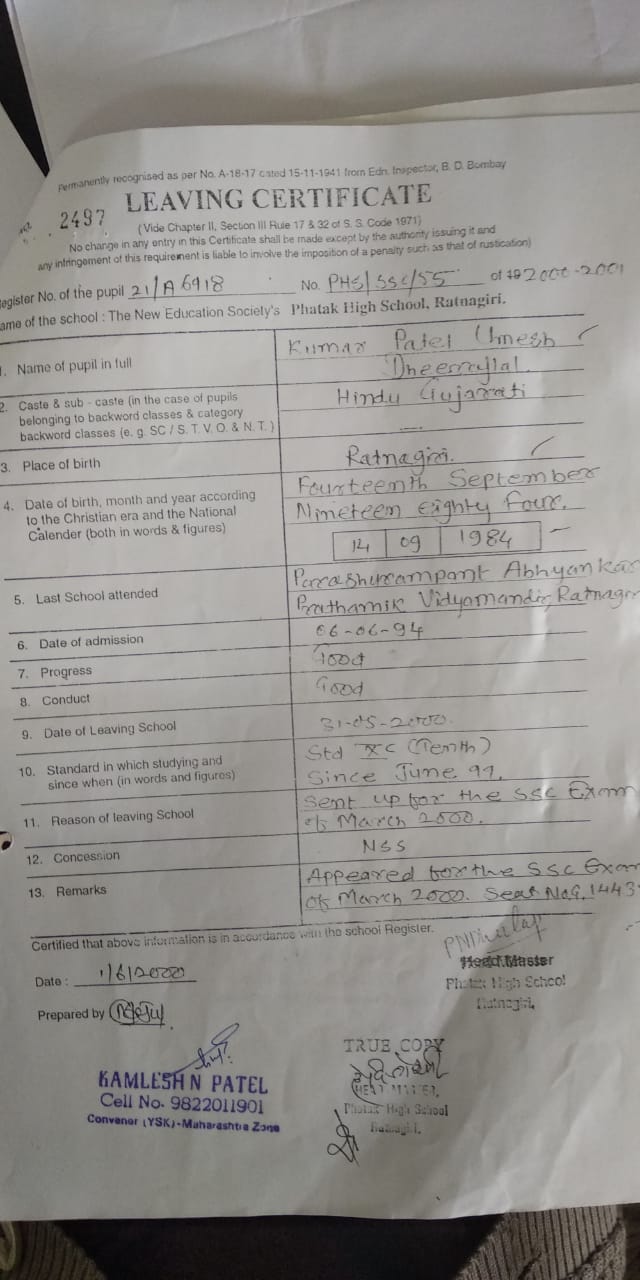 Permanently recognised as per No. A-18-17 dated 15-11-1941 from Edn. Inspector, B. D. Bombay
LEAVING CERTIFICATE
NO. 2497
(Vide Chapter II, Section III Rule 17 & 32 of S. S. Code 1971)
No change in any entry in this Certificate shall be made except by the authority issuing it and
any infringement of this requirement is liable to involve the imposition of a penalty such as that of rustication)
egister No. of the pupil 21/A 6918 No. PHS/SSC/55 of 19 2000-2001
ame of the school : The New Education Society's Phatak High School, Ratnagiri.
1. Name of pupil in full Kumar Patel Umesh
Dheerajlal.
2. Caste & sub - caste (in the case of pupils Hindu Gujarati
belonging to backword classes & category
backword classes (e. g. SC / S. T. V. O. & N. T. )
3. Place of birth Ratnagiri.
4. Date of birth, month and year according Fourteenth September
to the Christian era and the National Nineteen Eighty Four.
Calender (both in words & figures)
14 09 1984
5. Last School attended Parashurampant Abhyankar
Prathamik Vidyamandir, Ratnagiri
6. Date of admission 06-06-94
7. Progress Good
8. Conduct Good
9. Date of Leaving School 31-05-2000.
10. Standard in which studying and Std (Tenth)
since when (in words and figures) Since June 99.
11. Reason of leaving School Sent up for the SSC Exam
of March 2000.
12. Concession NSS
13. Remarks Appeared for the SSC Exam
of March 2000. Seat No.G.1443
Certified that above information is in accordance with the school Register.
Date : 1/6/2000 Head Master
Phatak High School
Ratnagiri.
Prepared by
TRUE COPY
KAMLESH N PATEL
HEAD MASTER,
Cell No. 9822011901
Phatak High School
Convenor (YSK)-Maharashtra Zone
Ratnagiri.